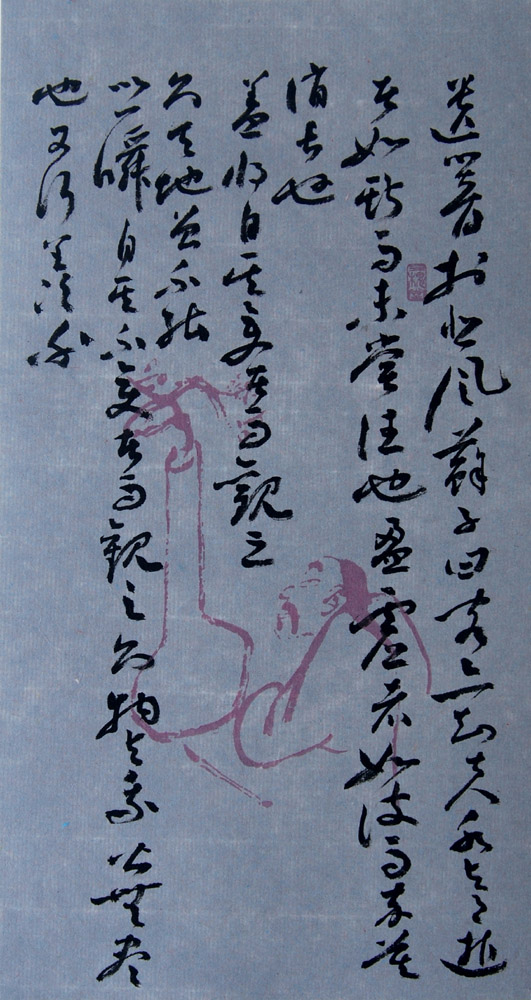 遺響於悲風蘇子曰客亦知夫水与月逝
者如斯而未嘗往也盈虛者如彼而卒莫
消長也
蓋将自其變者而觀之
则天地曾不能
以一瞬自其不變者而觀之则物与我皆無尽
也又何羡乎